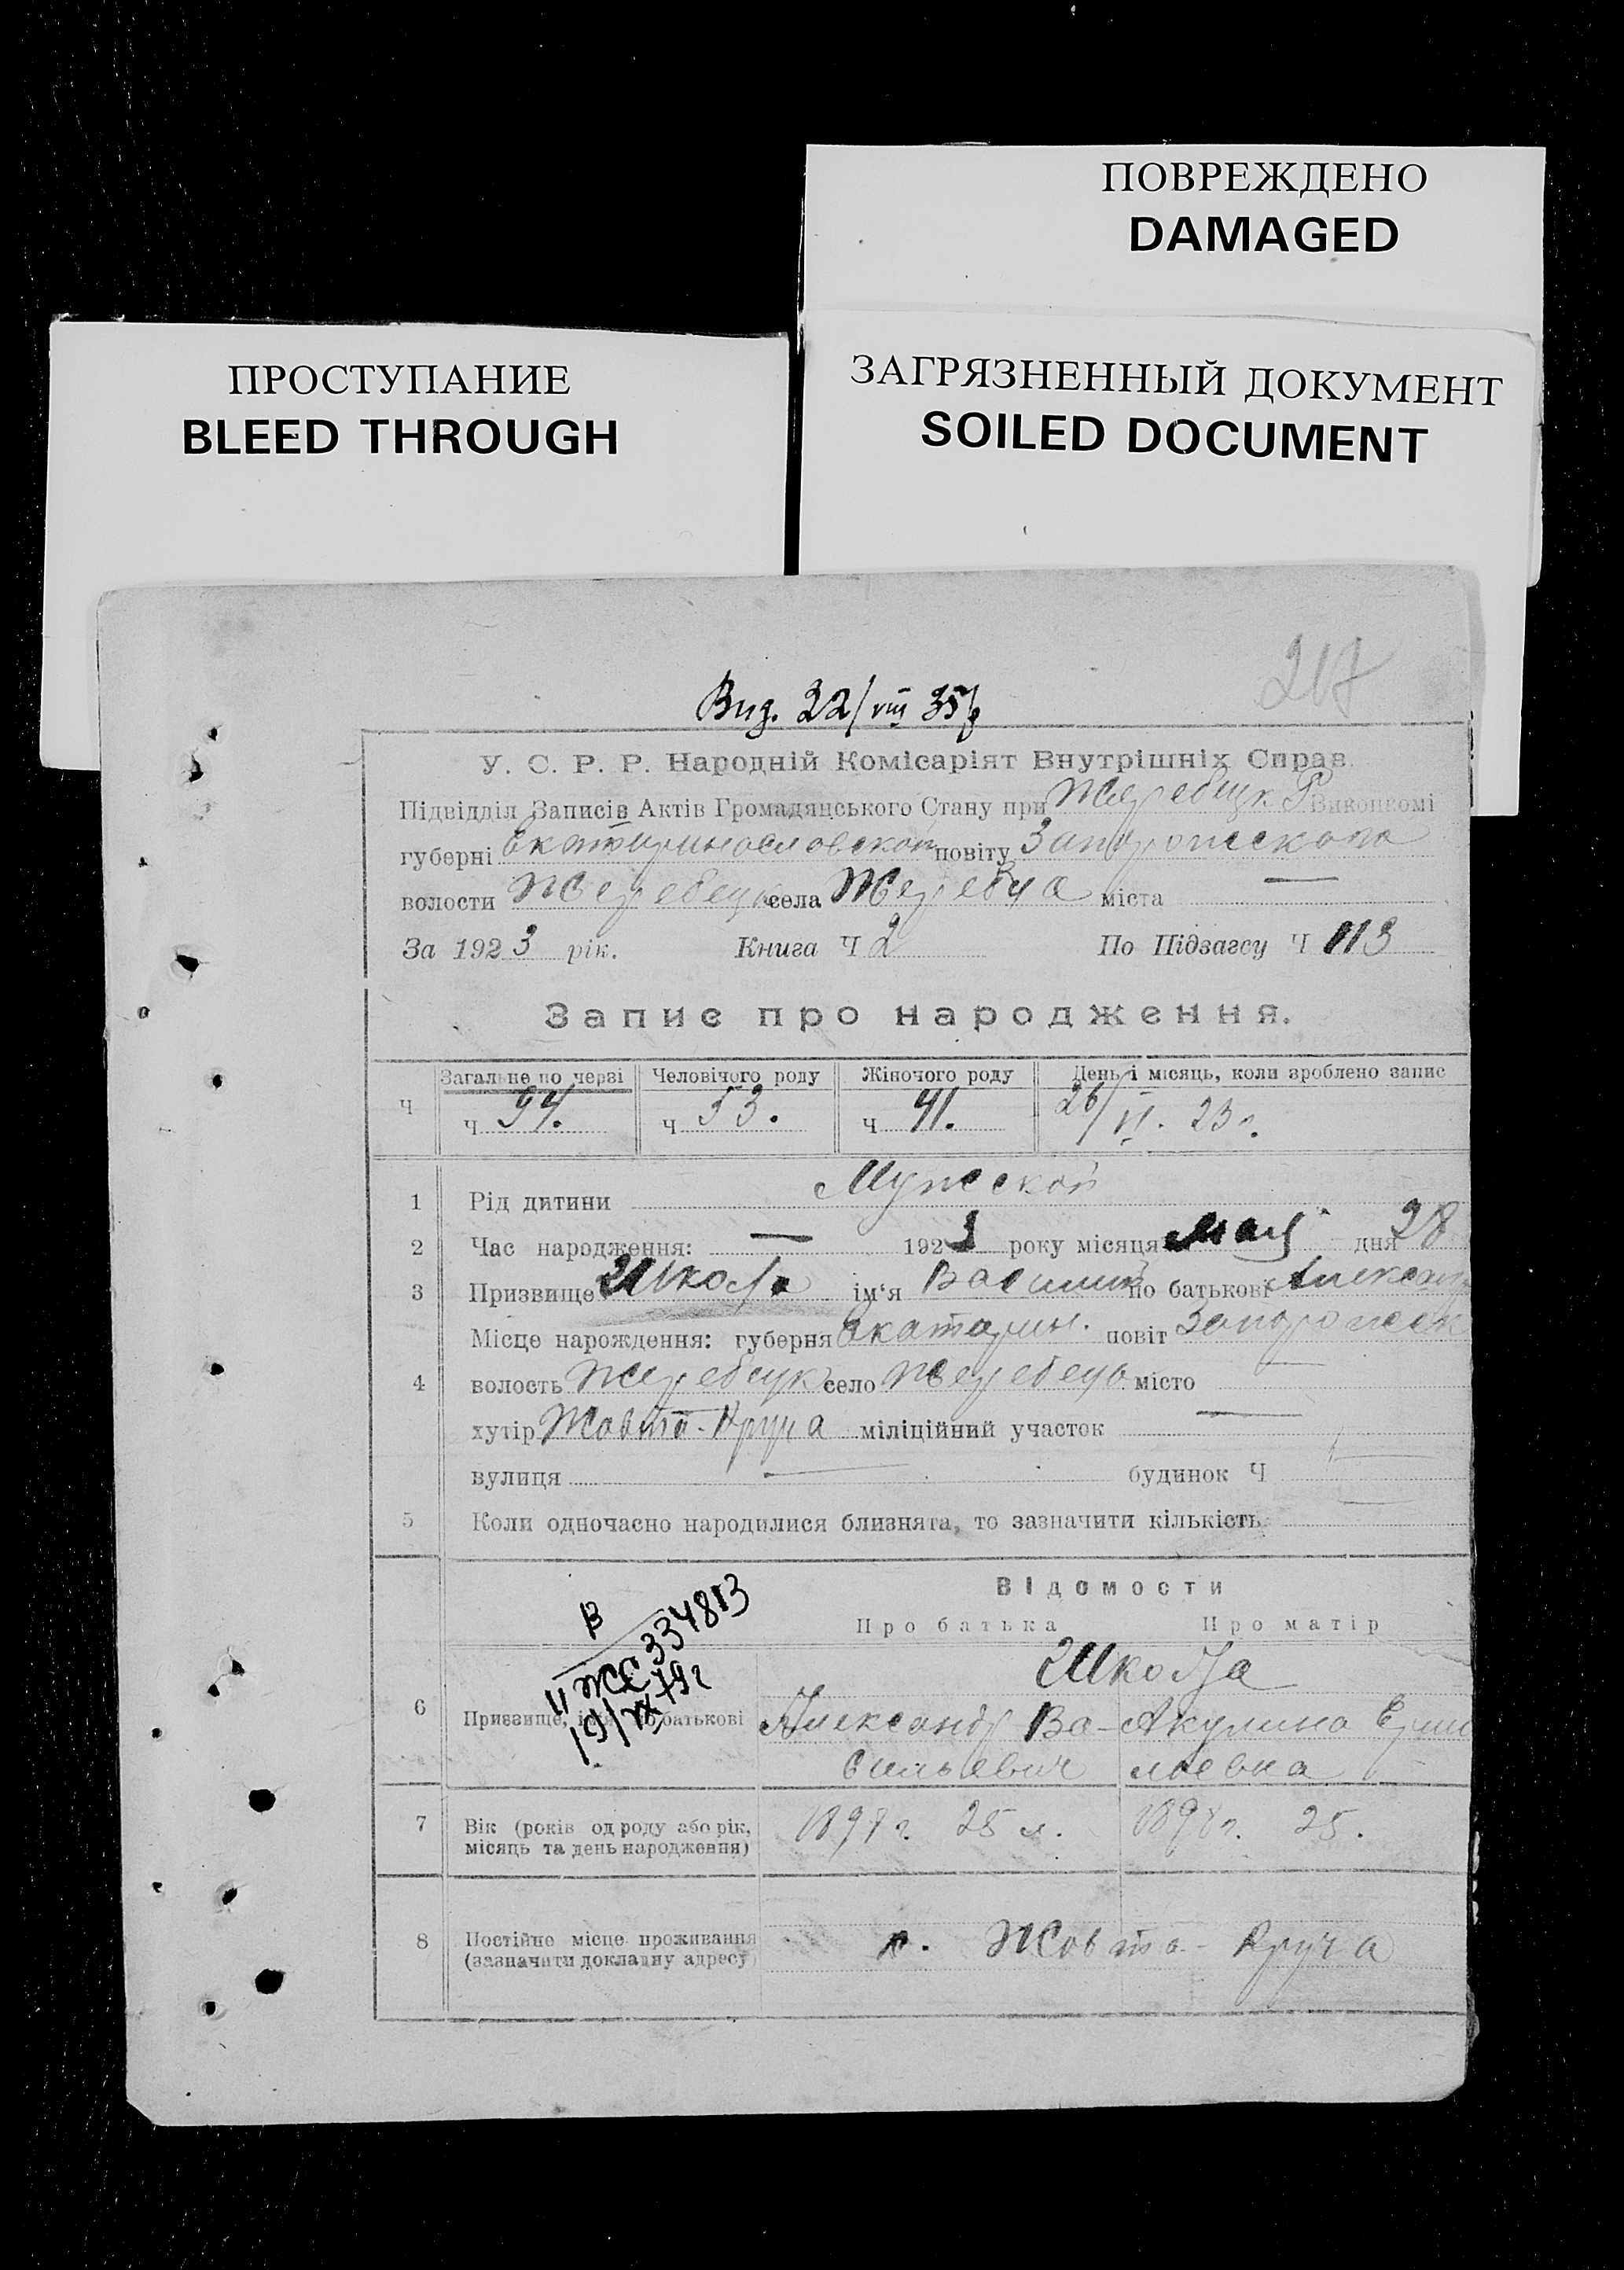 ПОВРЕЖДЕНО
DAMAGED
ПРОСТУПАНИЕ
BLEED THROUGH
ЗАГРЯЗНЕННЫЙ ДОКУМЕНТ
SOILED DOCUMENT
217
Вид. 22/VIII 35р
У. С. Р. Р. Народній Комісаріят Внутрішніх Справ.
Підвідділ Записів Актів Громадянського Стану при Жеребецк Р Виконкомі
губерні Екатеринославской повіту Запорожского
волости Жеребецк села Жеребца міста —
За 1923 рік. Книга Ч 2 По Підзагсу Ч 113
Запис про народження.
Загальне по черзі Человічого роду Жіночого роду День і місяць, коли зроблено запис
Ч ч 94. ч 53. ч 41. 26/VI. 23 г.
1 Рід дитини Мужской
2 Час народження: — 1923 року місяця мая дня 28
3 Призвище Шкода ім'я Василий по батькові Александ
Місце нарождення: губерня Екатерин. повіт Запорожск
4 волость Жеребецк село Жеребец місто —
хутір Жовта-Круча міліційний участок —
вулиця — будинок Ч
5 Коли одночасно народилися близнята, то зазначити кількість
Відомости
Про батька Про матір
В
II ЖС 334813
Шкода
6 Призвище, ім'я по батькові Александр Ва- Акулина Ерми
сильевич лаевна
7 Вік (років од роду або рік, 1897 г. 25 л. 1897 г. 25.
місяць та день народження)
8 Постійне місце проживання х. Жовта-Круча
(зазначити докладну адресу)